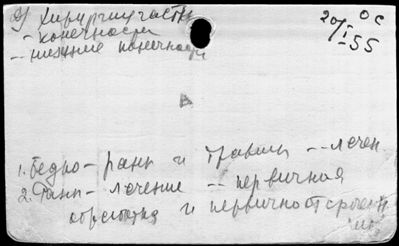 хирургия частн
- конечности
-- нижние конечности
20/I-55
ОС
1. Бедро - раны и травмы -- лечен
2. Раны - лечение -- первичная
обработка и первичноотсрочен